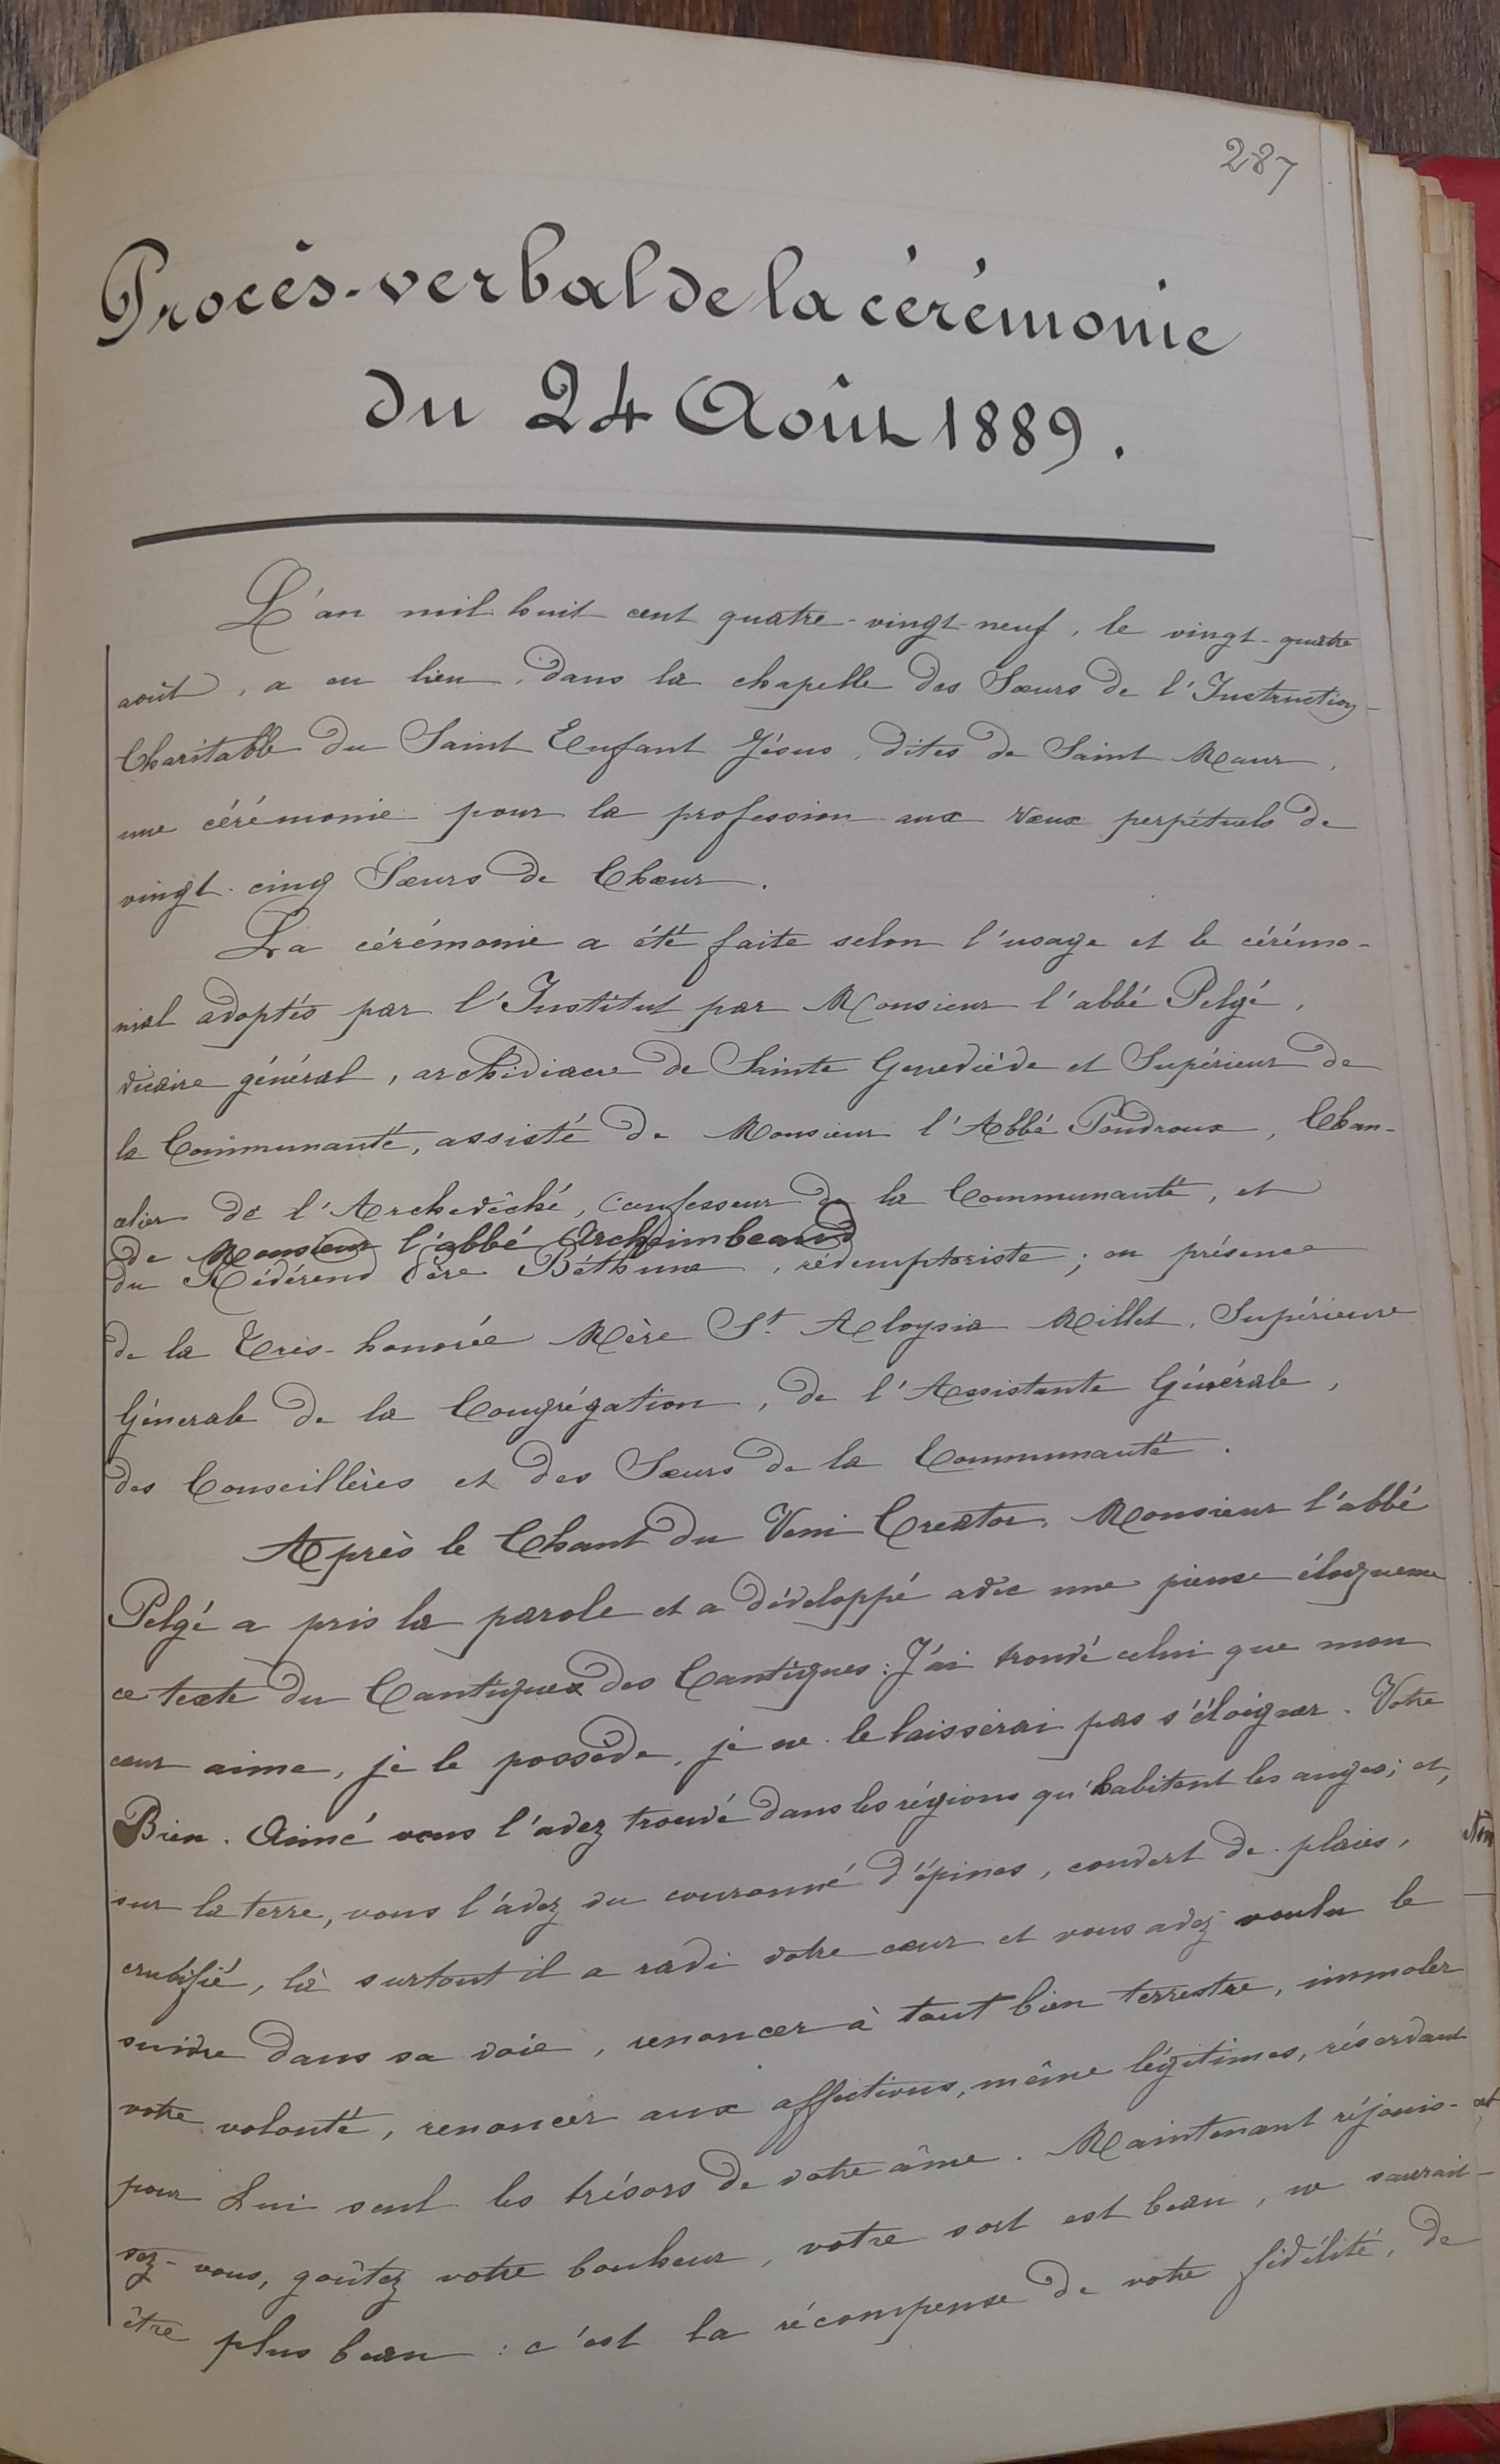 287
Procès-verbal de la cérémonie
du 24 Août 1889.
L'an mil huit cent quatre-vingt-neuf, le vingt-quatre
août, a eu lieu, dans la chapelle des Sœurs de l'Instruction
Charitable du Saint Enfant Jésus, dites de Saint Maur,
une cérémonie pour la profession aux vœux perpétuels de
vingt-cinq Sœurs de Chœur.
La cérémonie a été faite selon l'usage et le cérémo-
nial adoptés par l'Institut par Monsieur l'abbé Pelgé,
vicaire général, archidiacre de Sainte Geneviève et Supérieur de
la Communauté, assisté de Monsieur l'Abbé Pondroux, Chan-
celier de l'Archevêché, Confesseur de la Communauté, et
de Monsieur l'abbé Archambeaud
du Révérend Père Béthune, rédemptoriste; en présence
de la Très-honorée Mère St. Aloysia Millet, Supérieure
Génerale de la Congrégation, de l'Assistante Générale,
des Conseillères et des Sœurs de la Communauté.
Après le Chant du Veni Creator, Monsieur l'abbé
Pelgé a pris la parole et a développé avec une pieuse éloquence
ce texte du Cantiques des Cantiques: J'ai trouvé celui que mon
cœur aime, je le possède, je ne le laisserai pas s'éloigner. Votre
Bien-Aimé vous l'avez trouvé dans les régions qu'habitent les anges; et,
sur la terre, vous l'avez vu couronné d'épines, couvert de plaies,
crucifié, là surtout il a ravi votre cœur et vous avez voulu le
suivre dans sa voie, renoncer à tout bien terrestre, immoler
votre volonté, renoncer aux affections, même légitimes, réservant
pour Lui seul les trésors de votre âme. Maintenant réjouis-
sez-vous, goûtez votre bonheur, votre sort est beau, ne saurait
être plus beau : c'est la récompense de votre fidélité, de